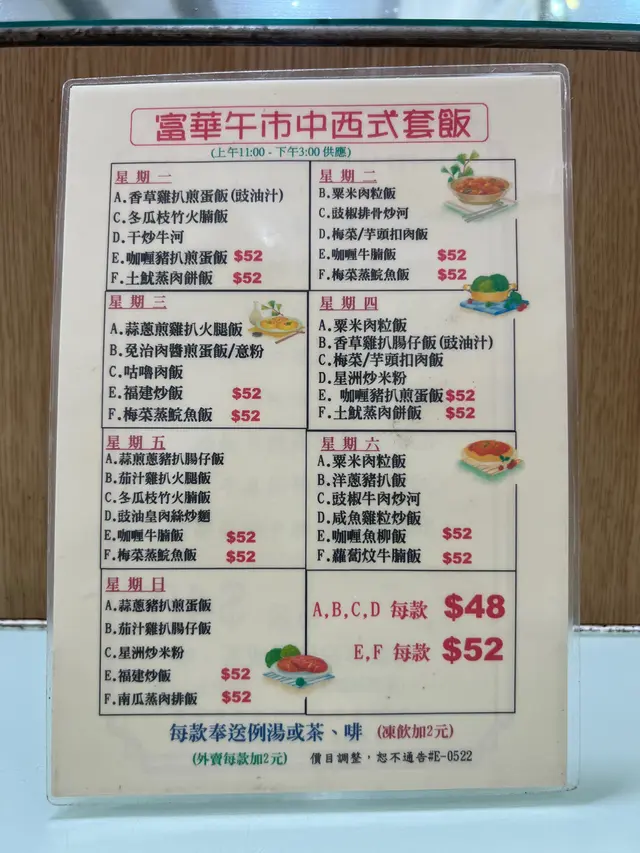 富華午市中西式套飯
(上午11:00 - 下午3:00 供應)
星期一
A.香草雞扒煎蛋飯(豉油汁)
C.冬瓜枝竹火腩飯
D.干炒牛河
E.咖喱豬扒煎蛋飯 $52
F.土魷蒸肉餅飯 $52
星期二
B.粟米肉粒飯
C.豉椒排骨炒河
D.梅菜/芋頭扣肉飯
E.咖喱牛腩飯 $52
F.梅菜蒸鯇魚飯 $52
星期三
A.蒜蔥煎雞扒火腿飯
B.免治肉醬煎蛋飯/意粉
C.咕嚕肉飯
E.福建炒飯 $52
F.梅菜蒸鯇魚飯 $52
星期四
A.粟米肉粒飯
B.香草雞扒腸仔飯(豉油汁)
C.梅菜/芋頭扣肉飯
D.星洲炒米粉
E. 咖喱豬扒煎蛋飯 $52
F.土魷蒸肉餅飯 $52
星期五
A.蒜煎蔥豬扒腸仔飯
B.茄汁雞扒火腿飯
C.冬瓜枝竹火腩飯
D.豉油皇肉絲炒麵
E.咖喱牛腩飯 $52
F.梅菜蒸鯇魚飯 $52
星期六
A.粟米肉粒飯
B.洋蔥豬扒飯
C.豉椒牛肉炒河
D.咸魚雞粒炒飯
E.咖喱魚柳飯 $52
F.蘿蔔炆牛腩飯 $52
星期日
A.蒜蔥豬扒煎蛋飯
B.茄汁雞扒腸仔飯
C.星洲炒米粉
E.福建炒飯 $52
F.南瓜蒸肉排飯 $52
A,B,C,D 每款 $48
E,F 每款 $52
每款奉送例湯或茶、啡 (凍飲加2元)
(外賣每款加2元) 價目調整，恕不通告#E-0522